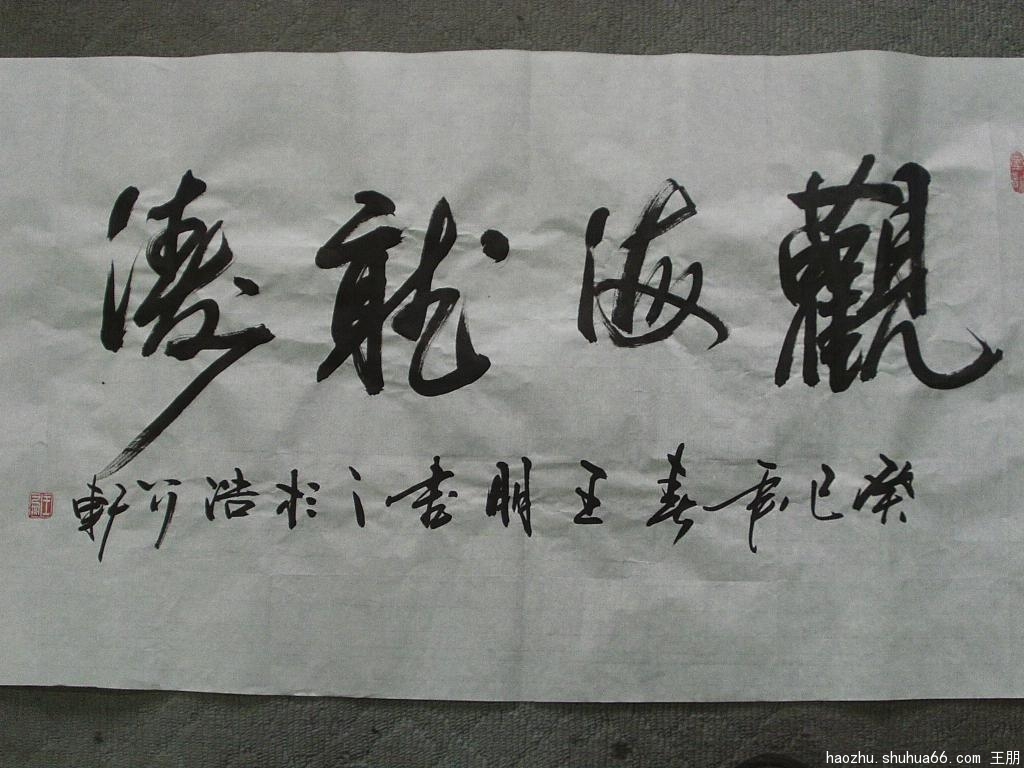 觀海龍濤
癸巳年春王朋書之於浩兮軒
haozhu.shuhua66.com 王朋